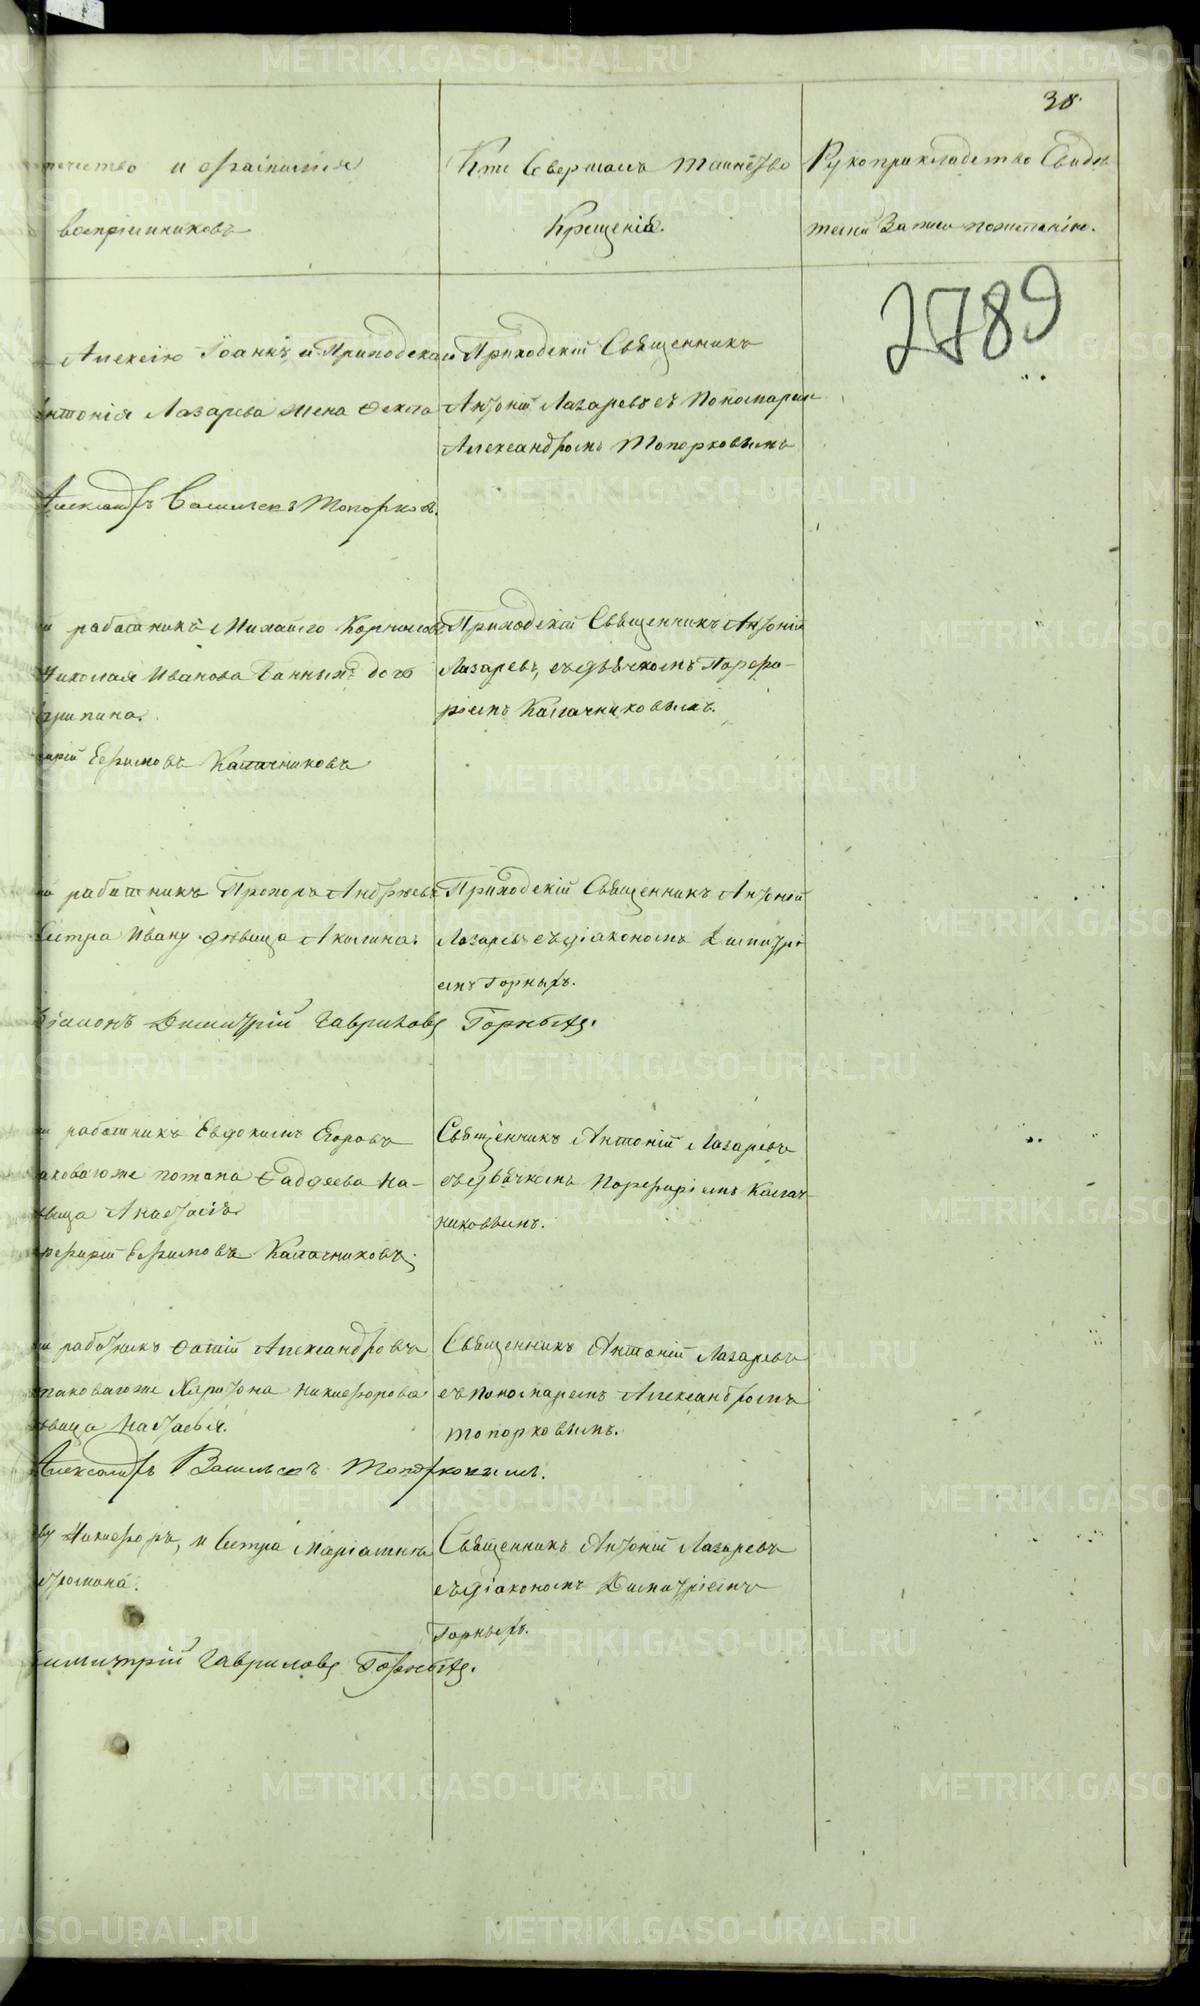 38.
и фамилия
воспріемниковъ
Кто Совершалъ таинство
Крещенія.
Рукоприкладство Свидѣ
телей Записи пожеланію.
2789
Алексію Іоаннъ и Приходскаго
Антонія Лазарева жена Фекла
Александръ Васильевъ Топорковъ.
Приходскій Священникъ
Антоній Лазаревъ съ Пономаремъ
Александромъ Топорковымъ
работникъ Михайло Корниловъ
Николая Иванова Банныхъ дочь
Агрипина.
Ефимовъ Калачниковъ
Приходскій Священникъ Антоній
Лазаревъ, съ дьячкомъ Порфи-
ріемъ Калачниковымъ.
работникъ Прохоръ Андреевъ
сестра Ивану дѣвица Акилина.
Діаконъ Димитрій Гавриловъ Горныхъ.
Приходскій Священникъ Антоній
Лазаревъ съ діакономъ Димитрі
емъ Горныхъ.
работникъ Евдокимъ Егоровъ
аковагоже Потапа Фадѣева На-
ѣвица Анастасія
Ефимовъ Калачниковъ.
Священникъ Антоній Лазаревъ
съ дьячкомъ Порфиріемъ Калач-
никовымъ.
работникъ Фотій Александровъ
таковагоже Харитона Никифорова
ѣвица Настасья.
Александръ Васильевъ Топорковымъ.
Священникъ Антоній Лазаревъ
съ Пономаремъ Александромъ
Топорковымъ.
Никифоръ, и Сестра Маріамна
Димитрій Гавриловъ Горныхъ.
Священникъ Антоній Лазаревъ
съ діакономъ Димитріемъ
Горныхъ.
METRIKI.GASO-URAL.RU